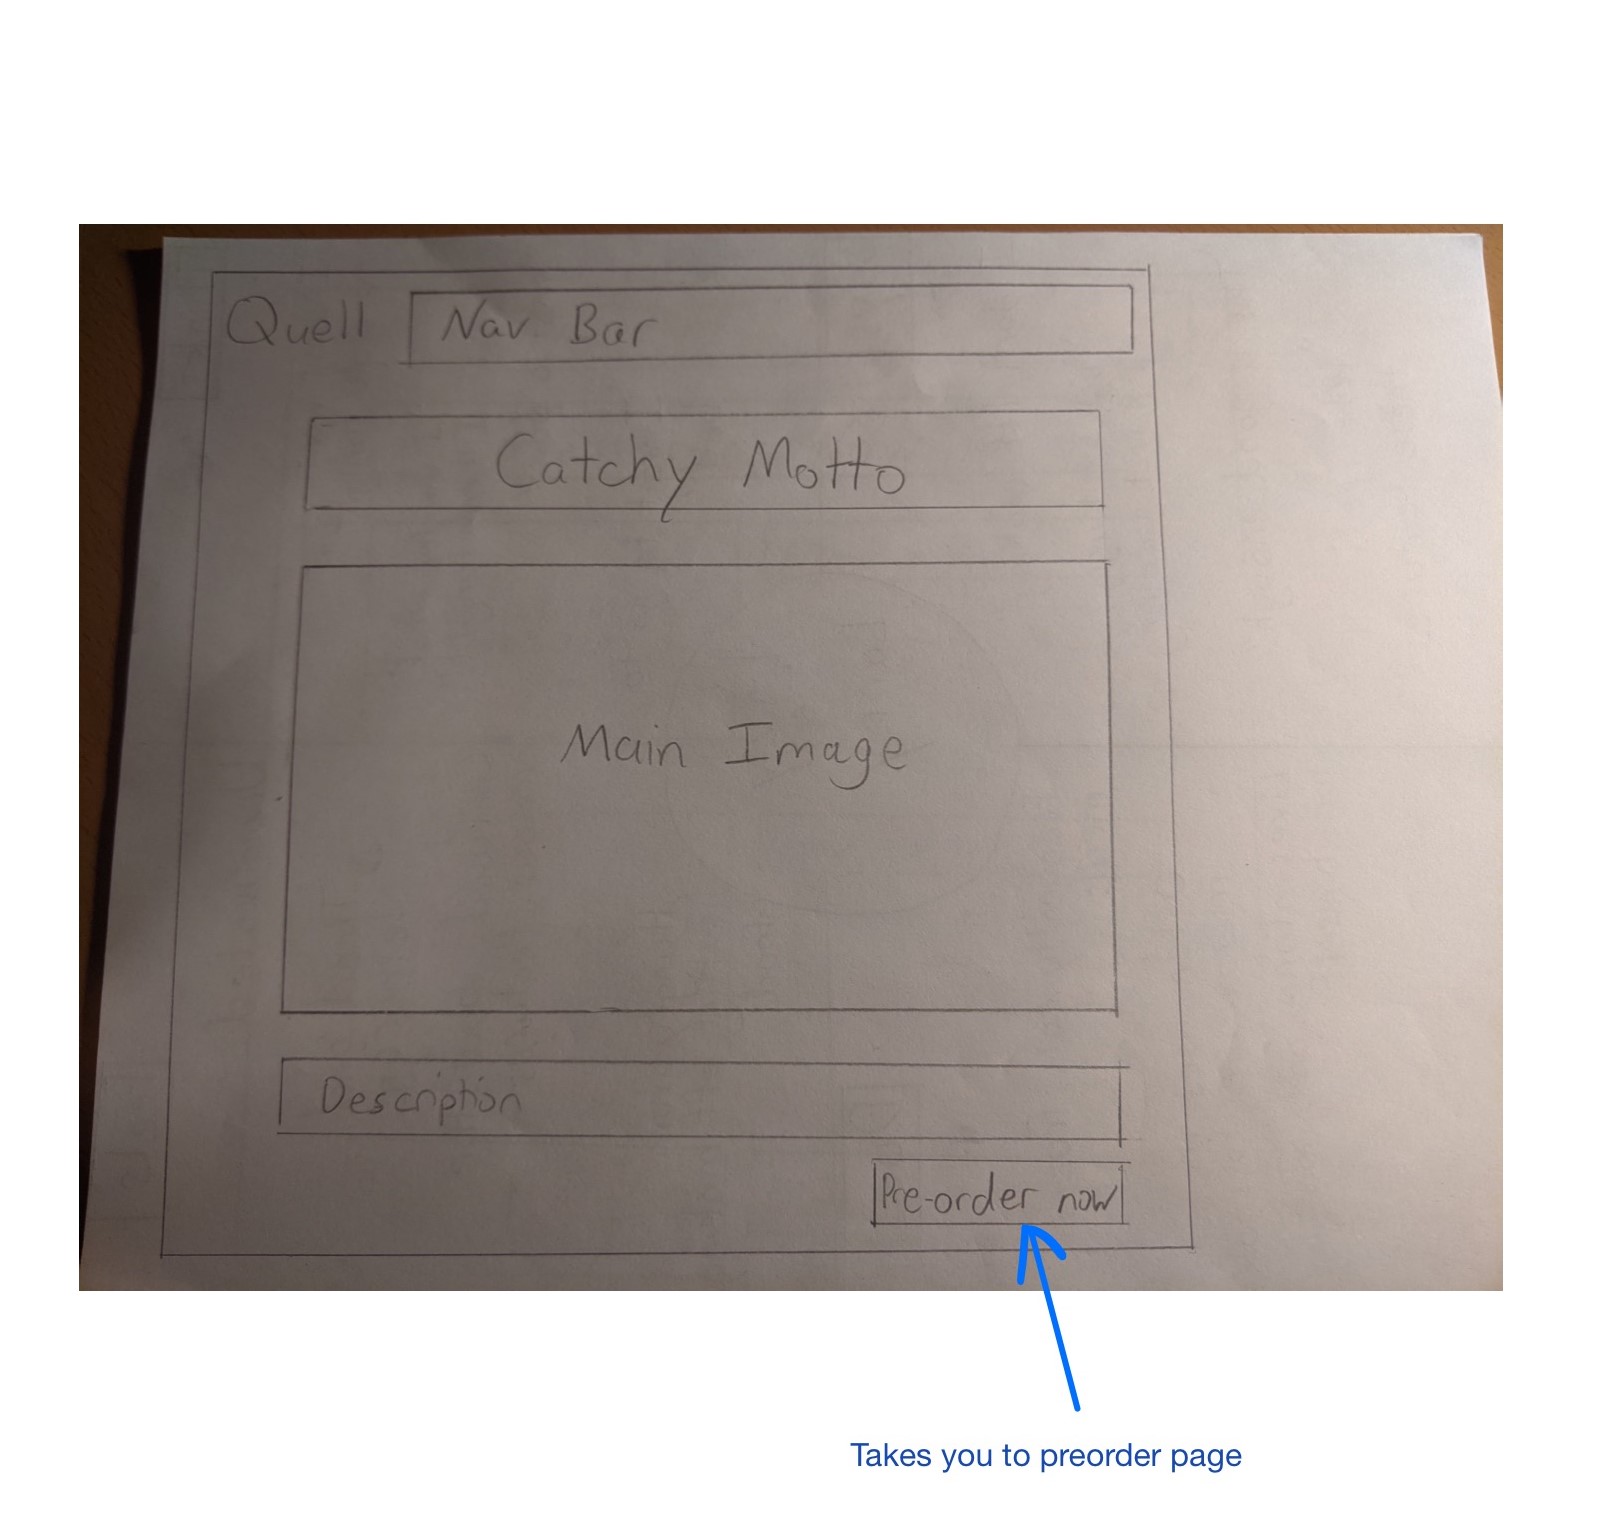 Quell
Nav Bar
Catchy Motto
Main Image
Description
Pre-order now
Takes you to preorder page